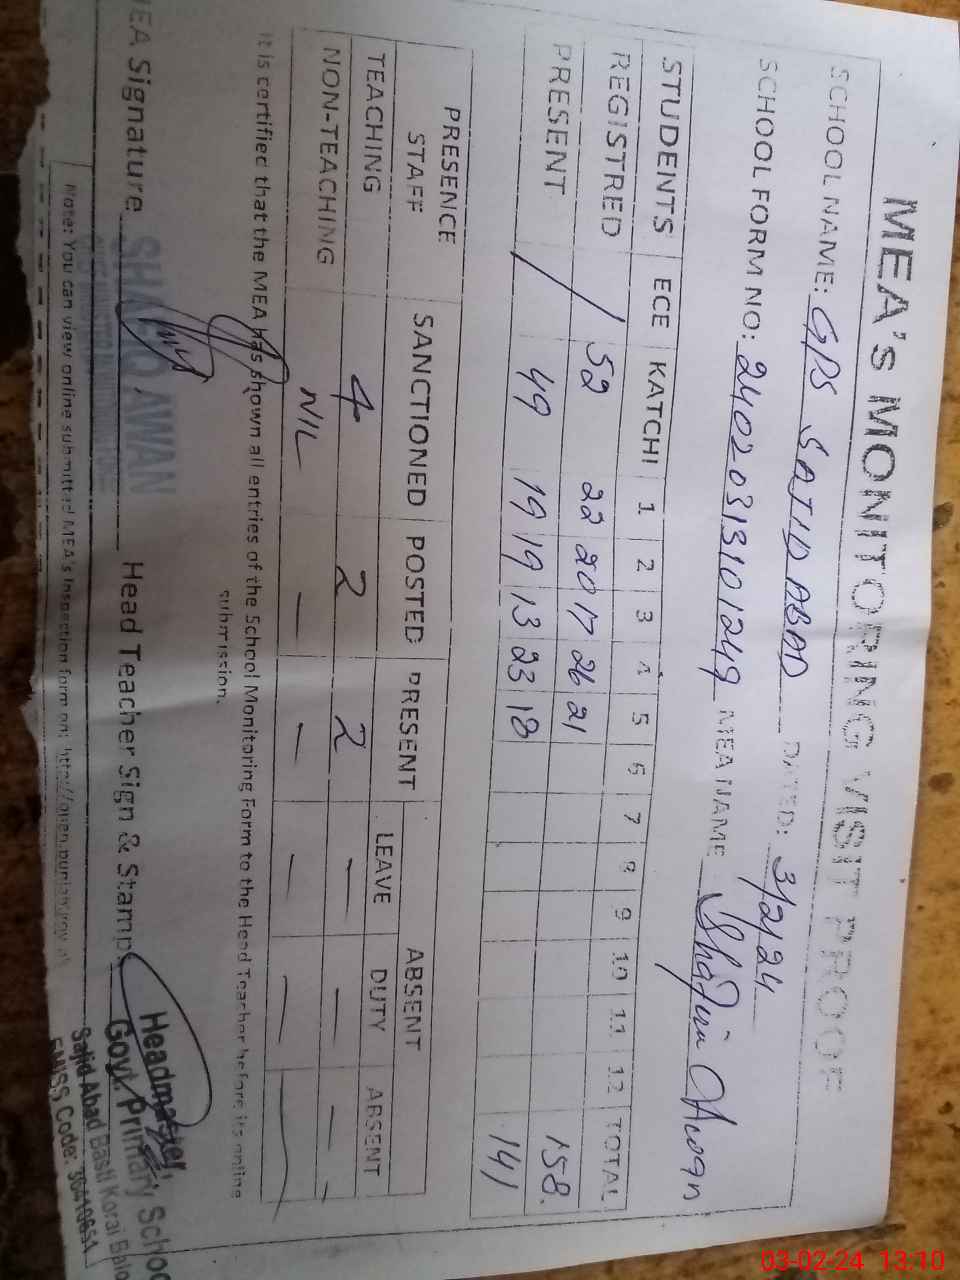 MEA's MONITORING VISIT PROOF
SCHOOL NAME: GPS SAJID ABAD DATED: 3/2/24
SCHOOL FORM NO: 24020313101249 MEA NAME
STUDENTS ECE KATCHI 1 2 3 4 5 6 7 8 9 10 11 12 TOTAL
REGISTRED / 52 22 20 17 26 21 158.
PRESENT / 49 19 19 13 23 18 141
PRESENCE
STAFF SANCTIONED POSTED PRESENT ABSENT
LEAVE DUTY ABSENT
TEACHING 4 2 2 - - -
NON-TEACHING NIL - - - - -
It is certified that the MEA has shown all entries of the School Monitoring Form to the Head Teacher before its online
submission.
MEA Signature Head Teacher Sign & Stamp
AWAN
Headmaster
Govt. Primary School
Sajid Abad Basti Korai
EMISS Code:
Note: You can view online submitted MEA's Inspection form on: http://open.punjab.gov
03-02-24 13:10